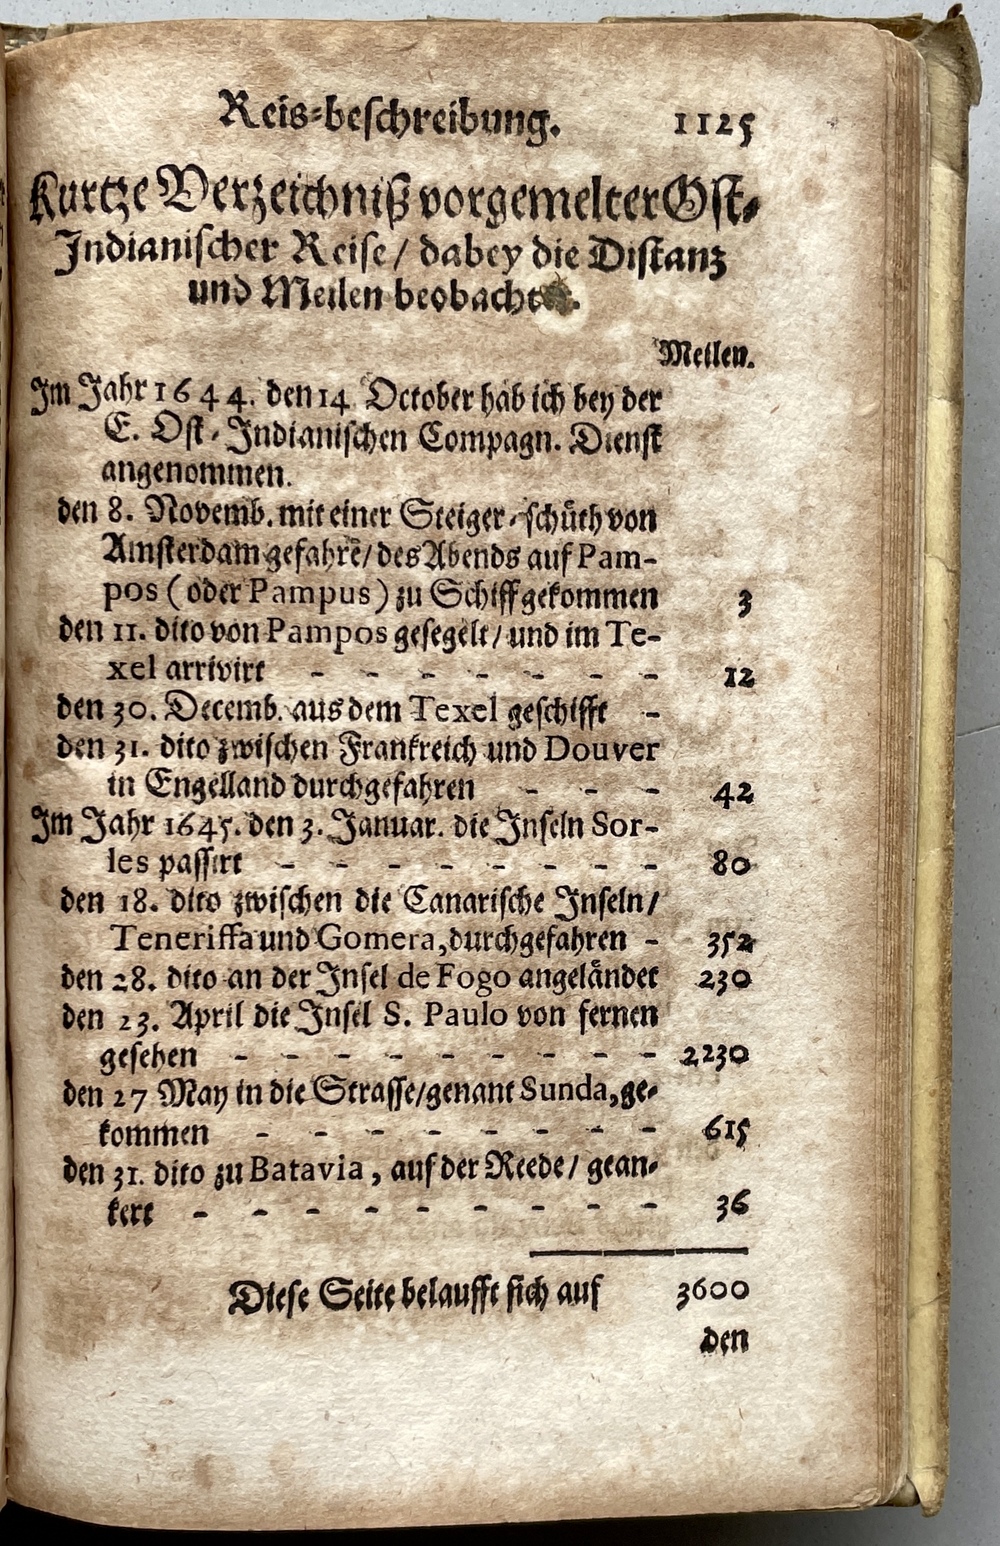 Reis=beschreibung. 1125
Kurtze Verzeichniß vorgemelter Ost-
Indianischer Reise / dabey die Distanz
und Meilen beobacht
Meilen.
Im Jahr 1644. den 14 October hab ich bey der
E. Ost-Indianischen Compagn. Dienst
angenommen.
den 8. Novemb. mit einer Steiger-schüth von
Amsterdam gefahrē / des Abends auf Pam-
pos (oder Pampus) zu Schiff gekommen 3
den 11. dito von Pampos gesegelt / und im Te-
xel arrivirt - - - - - - - 12
den 30. Decemb. aus dem Texel geschifft -
den 31. dito zwischen Frankreich und Douver
in Engelland durchgefahren - - - 42
Im Jahr 1645. den 3. Januar. die Inseln Sor-
les passirt - - - - - - - - 80
den 18. dito zwischen die Canarische Inseln /
Teneriffa und Gomera, durchgefahren - 352
den 28. dito an der Insel de Fogo angeländet 230
den 23. April die Insel S. Paulo von fernen
gesehen - - - - - - - - - 2230
den 27 May in die Strasse / genant Sunda, ge-
kommen - - - - - - - - 615
den 31. dito zu Batavia, auf der Reede / gean-
kert - - - - - - - - - 36
Diese Seite belaufft sich auf 3600
den